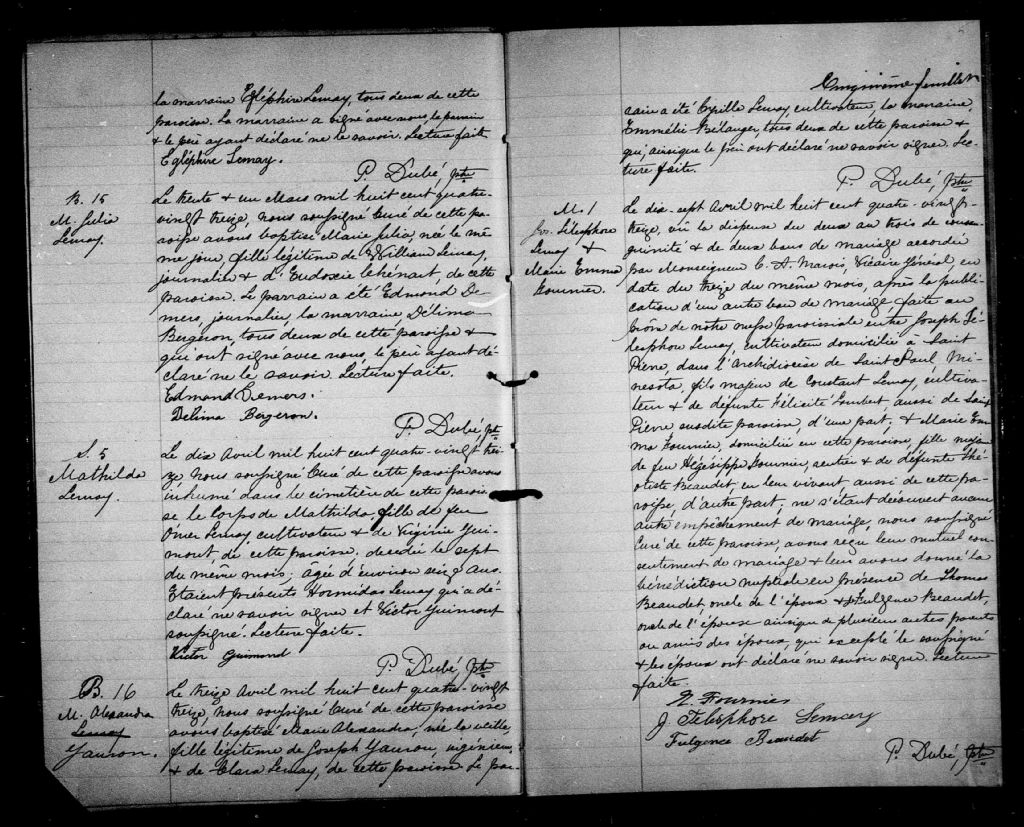 la marraine Egléphire Lemay, tous deux de cette
paroisse. La marraine a signé avec nous, le parrain
& le père ayant déclaré ne le savoir. Lecture faite
Egléphire Lemay.
P. Dubé, Ptre
B. 15
M. Julia
Lemay.
Le trente & un Mars mil huit cent quatre-
vingt treize, nous soussigné Curé de cette pa-
roisse avons baptisé Marie Julia, née le mê-
me jour, fille légitime de William Lemay,
journalier & d'Eudoxie Chénart, de cette
paroisse. Le parrain a été Edmond De-
mers, journalier, la marraine Délima
Bergeron, tous deux de cette paroisse &
qui ont signé avec nous, le père ayant dé-
claré ne le savoir. Lecture faite.
Edmond Demers.
Délima Bergeron.
P. Dubé, Ptre
S. 5
Mathilda
Lemay.
Le dix Avril mil huit cent quatre-vingt trei-
ze nous soussigné Curé de cette paroisse avons
inhumé dans le cimetière de cette parois-
se le Corps de Mathilda, fille de feu
Omer Lemay cultivateur & de Virginie Gui-
mont de cette paroisse; décédée le sept
du même mois; âgée d'environ seize ans.
Etaient présents Hormidas Lemay qui a dé-
claré ne savoir signer et Victor Guimont
soussigné. Lecture faite.
Victor Guimond
P. Dubé, Ptre
B. 16
M. Alexandra
Lemay
Yauron.
Le treize Avril mil huit cent quatre-vingt
treize, nous soussigné Curé de cette paroisse
avons baptisé Marie Alexandra, née la veille,
fille légitime de Joseph Yauron, ingénieur,
& de Clara Lemay, de cette paroisse. Le par-
Cinquième feuillet
rain a été Cyrille Lemay, cultivateur la marraine,
Emmélie Bélanger, tous deux de cette paroisse &
qui, ainsique le père ont déclaré ne savoir signer. Lec-
ture faite.
P. Dubé, Ptre
M. 1
Jos. Télesphore
Lemay &
Marie Emma
Fournier.
Le dix-sept Avril mil huit cent quatre-vingt-
treize, vu la dispense du deux au trois de consan-
guinité & de deux bans de mariage accordée
par Monseigneur C. A. Marois, Vicaire Général, en
date du treize du même mois, après la publi-
cation d'un autre ban de mariage faite au
prône de notre messe paroissiale entre Joseph Té-
lesphore Lemay, cultivateur domicilié à Saint
Pierre, dans l'Archidiocèse de Saint Paul Min-
nesota, fils majeur de Constant Lemay, cultiva-
teur & de défunte Félicité Loubert aussi de Saint
Pierre susdite paroisse, d'une part; & Marie Em-
ma Fournier, domiciliée en cette paroisse, fille majeure
de feu Hégésippe Fournier, rentier & de défunte Thé-
otiste Beaudet en leur vivant aussi de cette pa-
roisse, d'autre part; ne s'étant découvert aucun
autre empêchement de mariage, nous soussigné
Curé de cette paroisse, avons reçu leur mutuel con-
sentement de mariage & leur avons donné la
bénédiction nuptiale en présence de Thomas
Beaudet, oncle de l'époux & Fulgence Beaudet,
oncle de l'épouse ainsique de plusieurs autres parents
ou amis des époux, qui excepté le soussigné
& les époux ont déclaré ne savoir signer. Lecture
faite.
E. Fournier
J Telesphore Lemay
Fulgence Beaudet
P. Dubé, Ptre